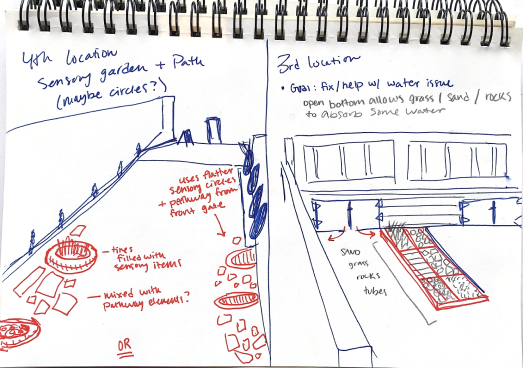 4th location
Sensory garden + Path
(maybe circles?)
uses flatter
sensory circles
+ pathway from
front gate
- tires
filled with
sensory items
- mixed with
pathway elements?
OR
3rd location
• Goal: fix/help w/ water issue
open bottom allows grass / sand / rocks
to absorb some water
sand
grass
rocks
tubes